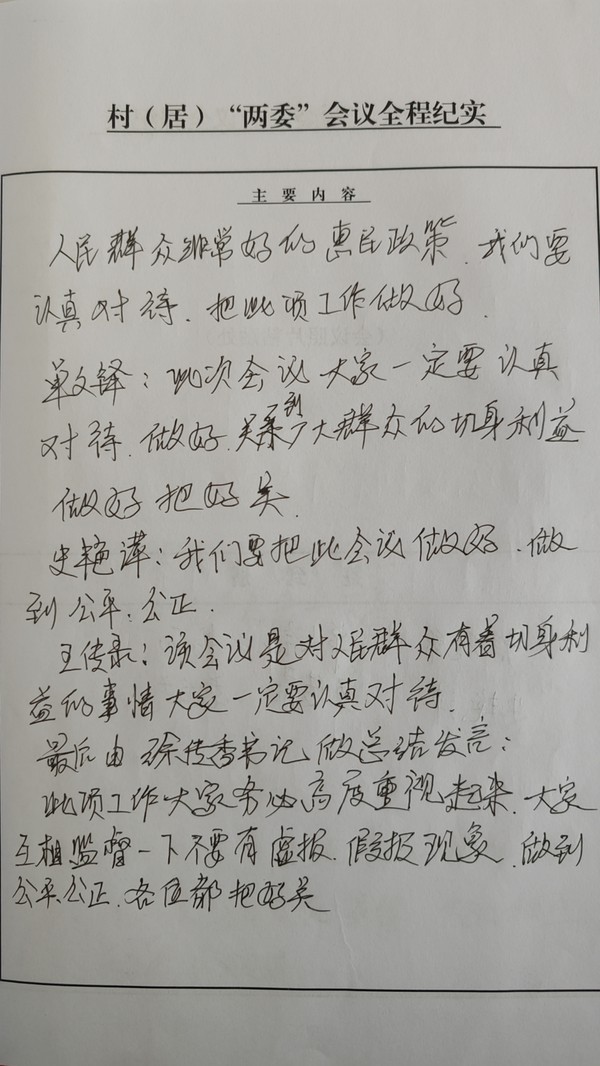 村（居）“两委”会议全程纪实
主要内容
人民群众非常好的惠民政策、我们要
认真对待、把此项工作做好、
单文铎：此次会议大家一定要认真
对待、做好、关系到广大群众的切身利益
做好把好关、
史艳萍：我们要把此会议做好、做
到公平、公正、
王传录：该会议是对人民群众有着切身利
益的事情大家一定要认真对待、
最后由徐传香书记做总结发言：
此项工作大家务必高度重视起来、大家
互相监督一下不要有虚报、假报现象、做到
公平公正、各位都把好关